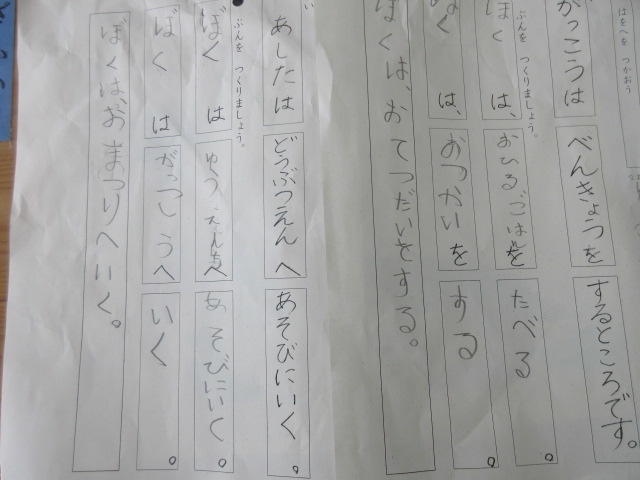 はをへを つかおう
がっこうは べんきょうを するところです。
ぶんを つくりましょう。
ぼく は、 おひるごはんを たべる 。
ぼく は、 おつかいを する 。
ぼくは、おてつだいをする。
あしたは どうぶつえんへ あそびにいく 。
ぶんを つくりましょう。
ぼく は ゆうえんちへ あそびにいく 。
ぼく は がっこうへ いく 。
ぼくは、おまつりへいく。